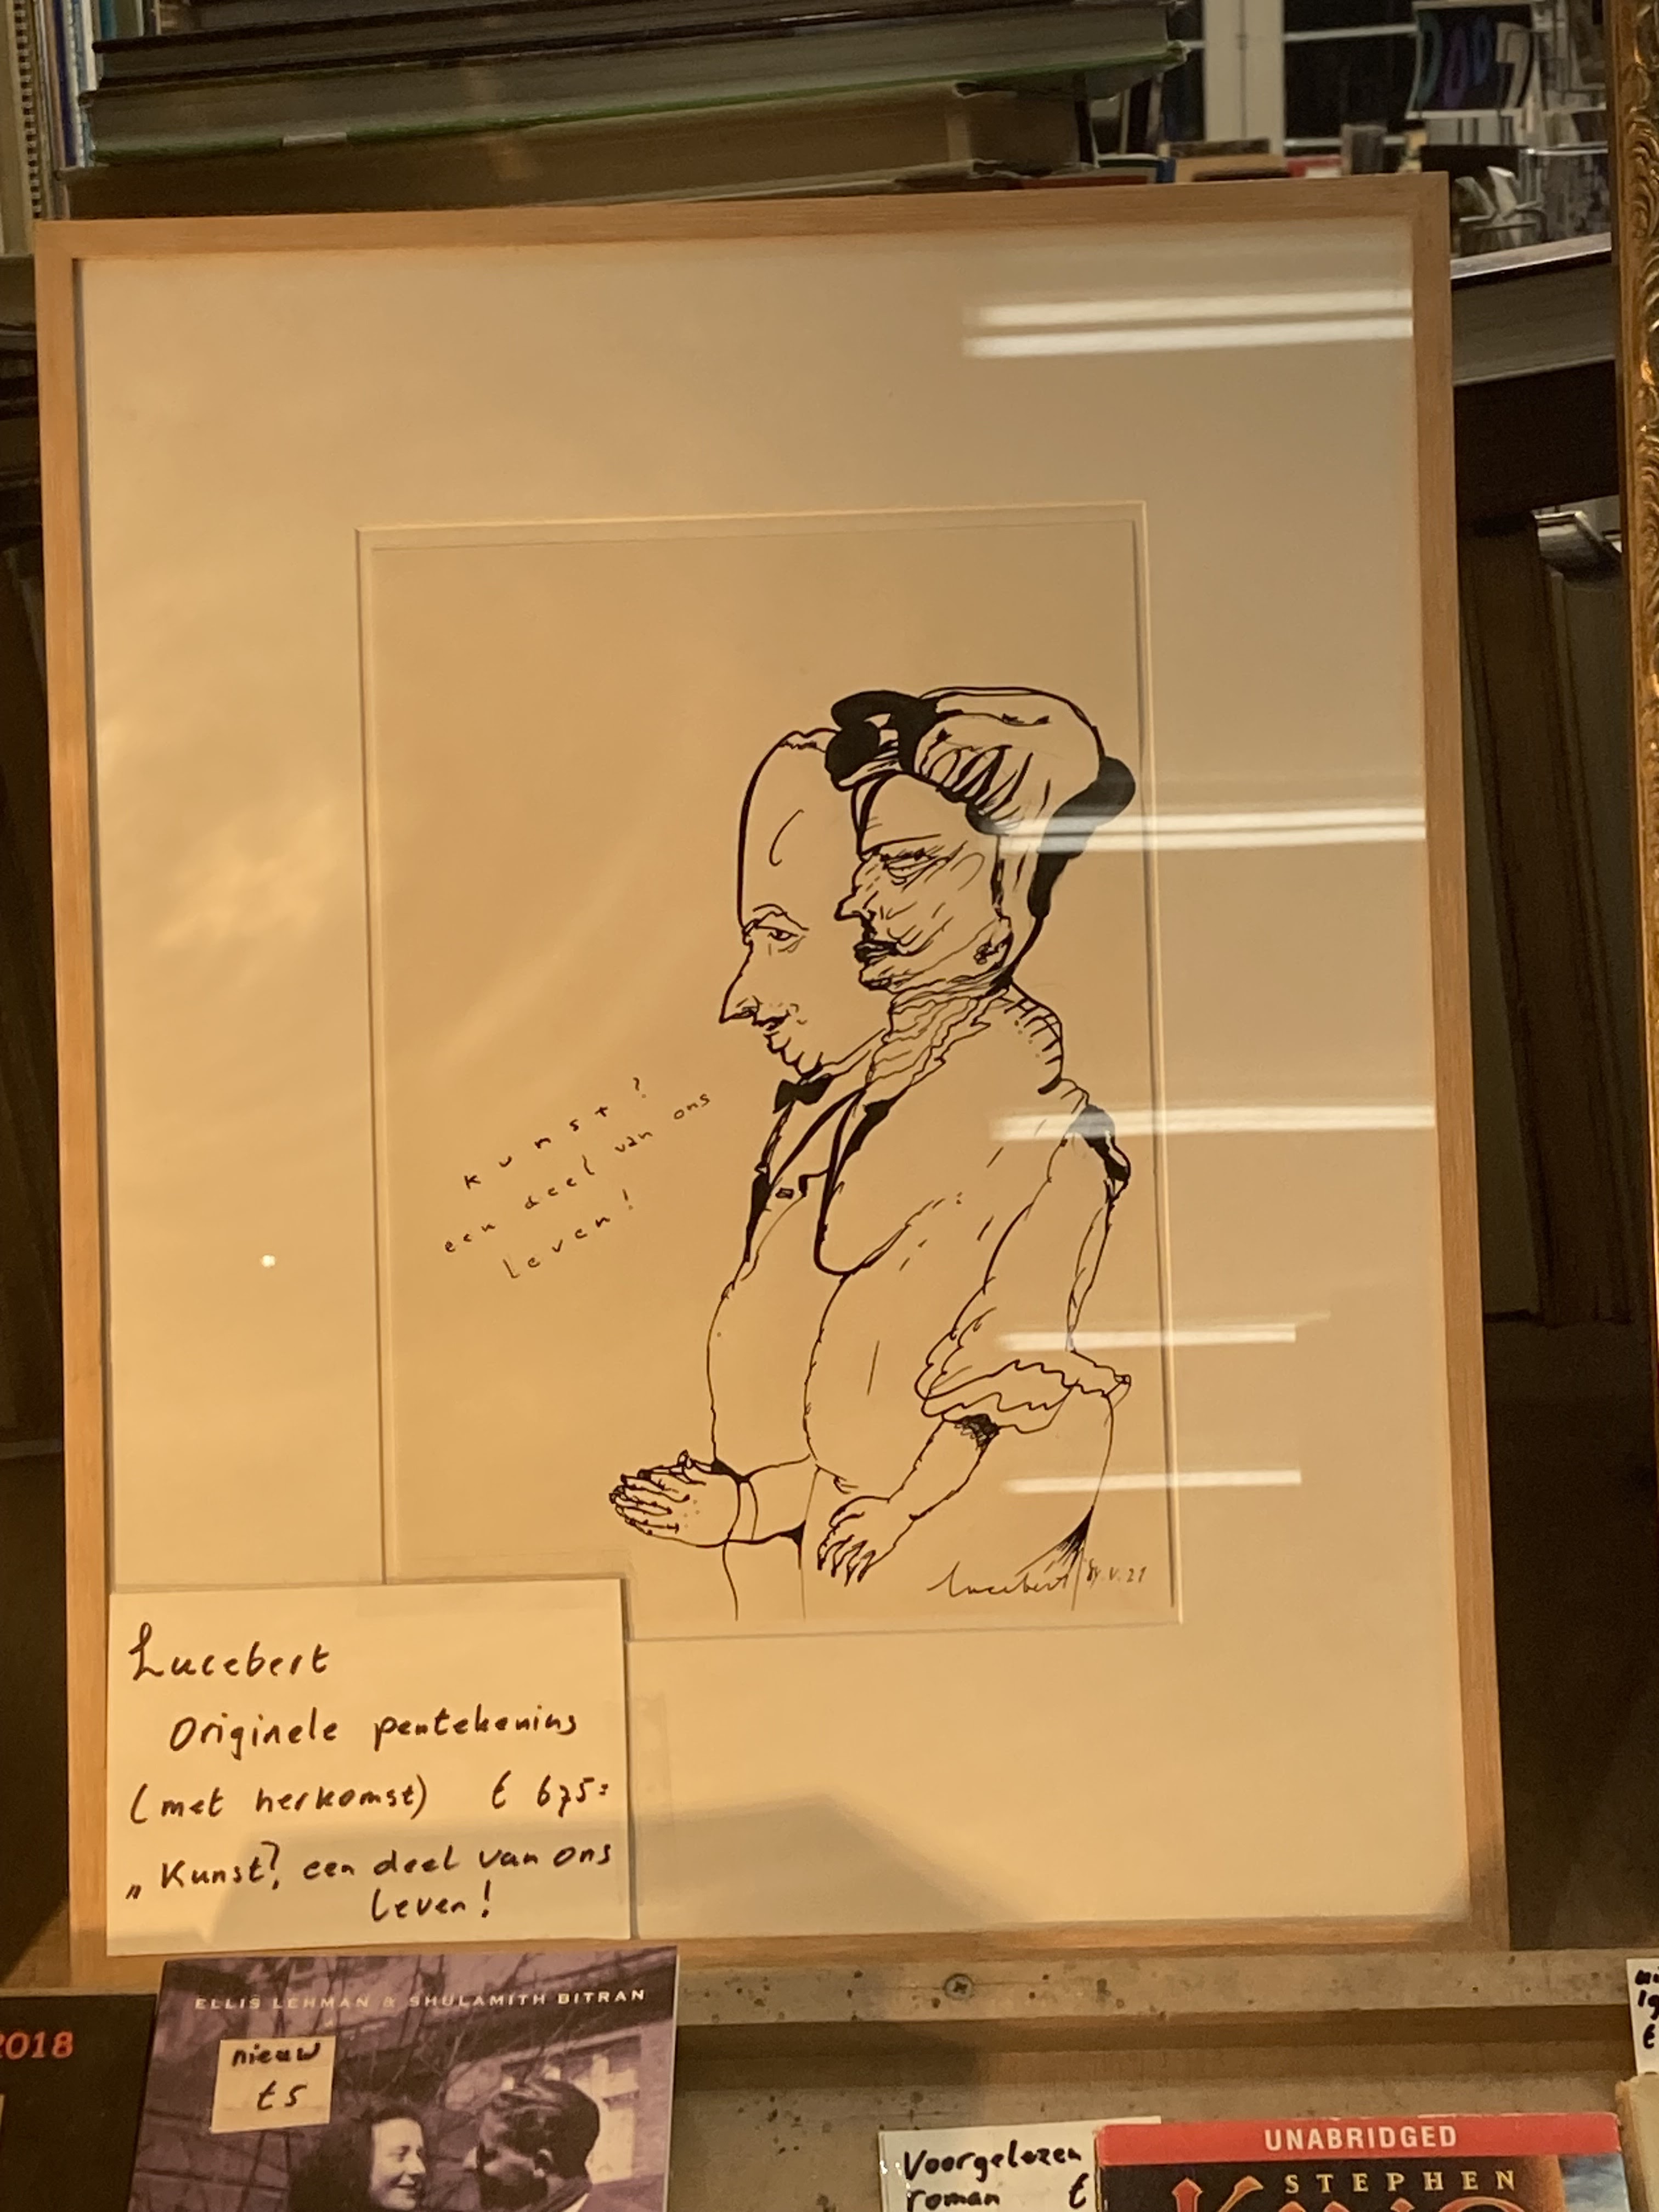 kunst?
een deel van ons
leven!
Lucebert
Lucebert
Originele pentekening
(met herkomst) € 675=
„Kunst? een deel van ons
leven!
ELLIS LEHMAN & SHULAMITH BITRAN
2018
nieuw
€ 5
Voorgelezen
roman €
UNABRIDGED
STEPHEN
KING